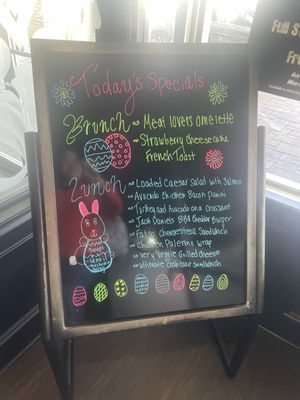 Today's Specials
Brunch Meat lovers omelette
Strawberry Cheesecake
French Toast
Lunch Loaded Caesar Salad with Salmon
Avocado Chicken Bacon Panini
Turkey and Avocado on a Croissant
Jack Daniels BBQ Cheddar Burger
Fajita Cheesesteak Sandwich
Chicken Palermo Wrap
Very Veggie Grilled Cheese
Ultimate Crab cake Sandwich
Soups
Full S
Fr